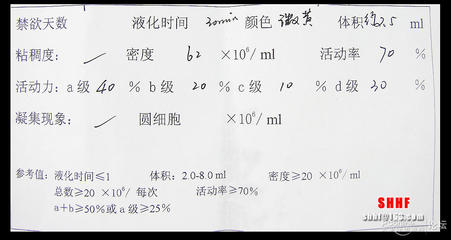 禁欲天数 液化时间 30min 颜色 微黄 体积 约2.5 ml
粘稠度: 密度 62 ×10⁶/ml 活动率 70 %
活动力: a级 40 % b级 20 % c级 10 % d级 30 %
凝集现象: 圆细胞 ×10⁶/ml
参考值: 液化时间≤1 体积: 2.0-8.0 ml 密度≥20 ×10⁶/ ml
总数≥20 ×10⁶/ 每次 活动率≥70%
a+b≥50%或a级≥25%
SHHF
论坛